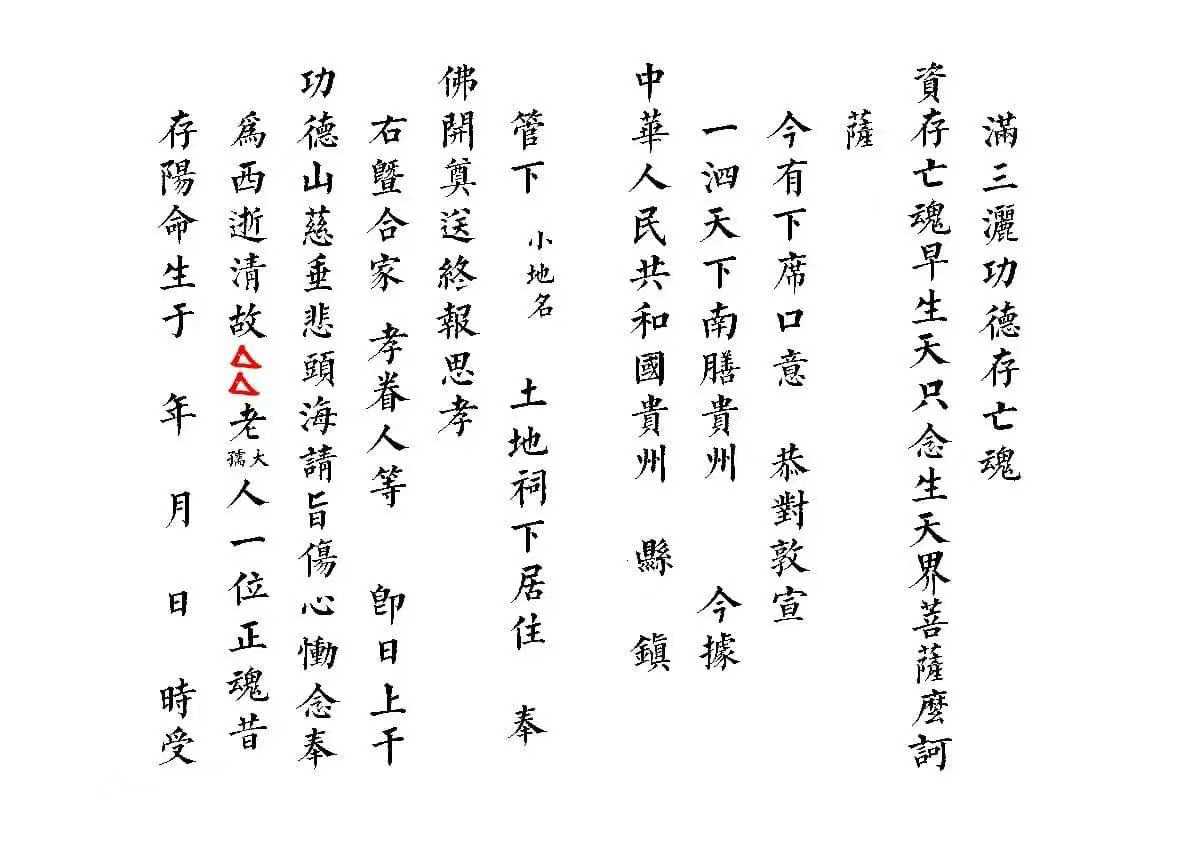 滿三灑功德存亡魂
資存亡魂早生天只念生天界菩薩麼訶
薩
今有下席口意 恭對敦宣
一泗天下南膳貴州 今據
中華人民共和國貴州 縣 鎮
管下 小地名 土地祠下居住 奉
佛開奠送終報思孝
右暨合家 孝眷人等 卽日上干
功德山慈垂悲頭海請旨傷心慟念奉
爲西逝清故△△老大孺人一位正魂昔
存陽命生于 年 月 日 時受